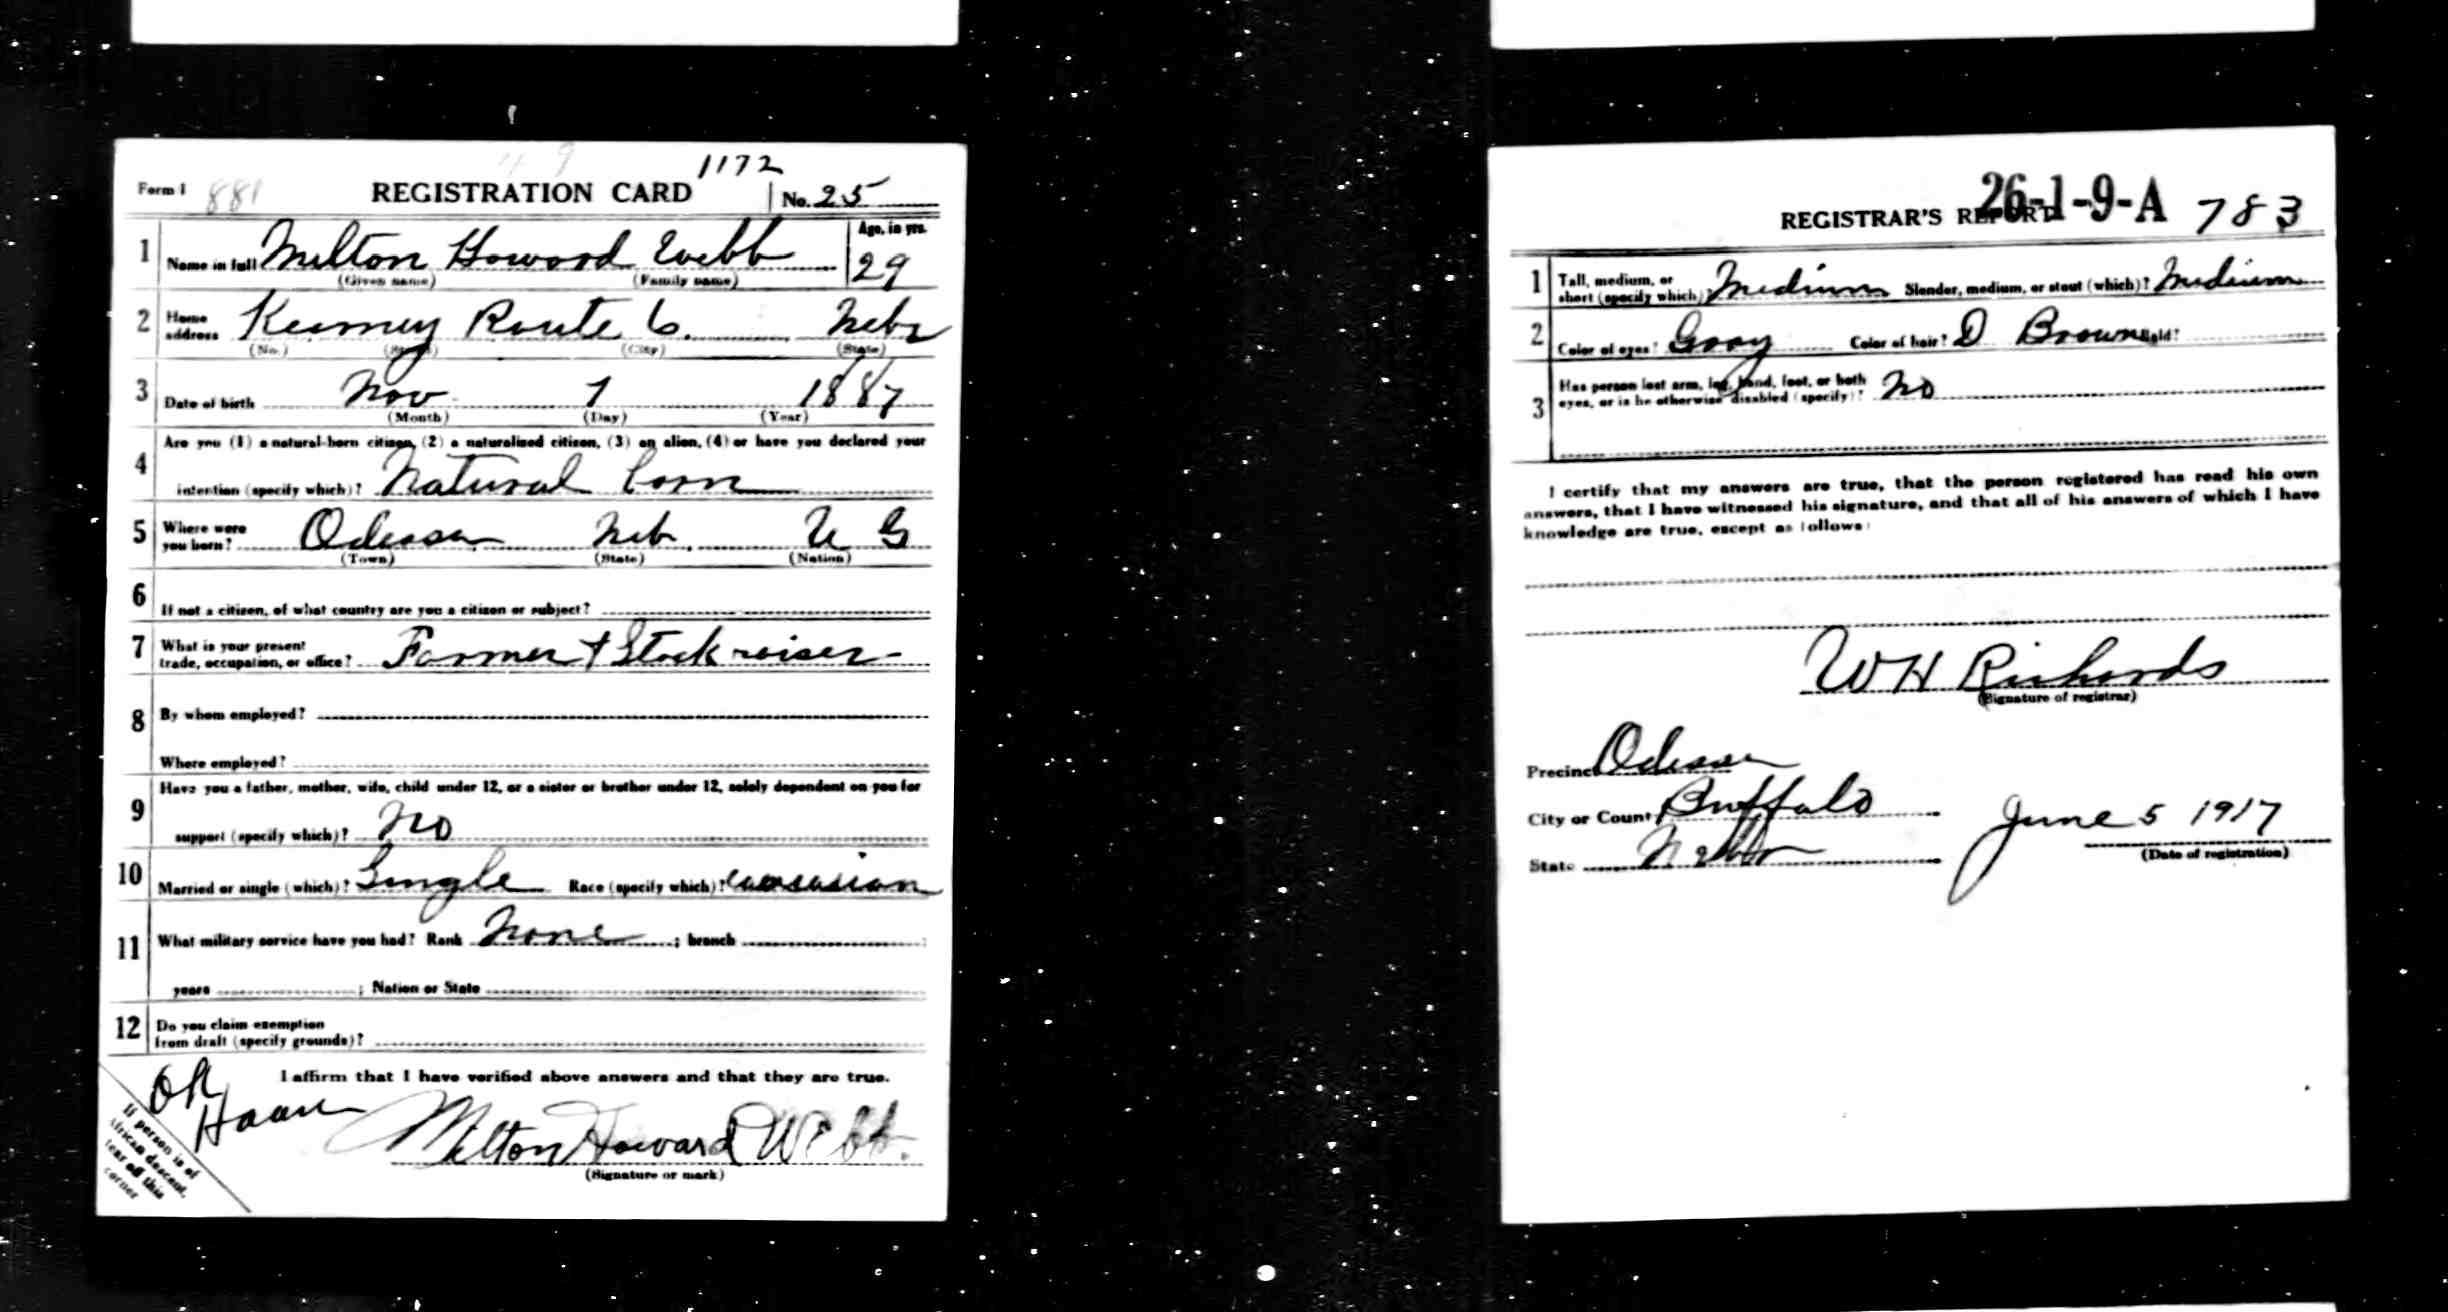 1172
Form 1 881 REGISTRATION CARD No. 25
1 Name in full Milton Howard Webb Age, in yrs. 29
(Given name) (Family name)
2 Home address Kearney Route 6. Nebr
(No.) (Street) (City) (State)
3 Date of birth Nov 7 1887
(Month) (Day) (Year)
Are you (1) a natural-born citizen, (2) a naturalized citizen, (3) an alien, (4) or have you declared your
4 intention (specify which)? Natural born
5 Where were you born? Odessa Neb. U S
(Town) (State) (Nation)
6 If not a citizen, of what country are you a citizen or subject?
7 What is your present
trade, occupation, or office? Farmer + Stock raiser
8 By whom employed?
Where employed?
Have you a father, mother, wife, child under 12, or a sister or brother under 12, solely dependent on you for
9 support (specify which)? No
10 Married or single (which)? Single Race (specify which)? Caucasian
11 What military service have you had? Rank None ; branch ;
years ; Nation or State
12 Do you claim exemption
from draft (specify grounds)?
I affirm that I have verified above answers and that they are true.
OK
Milton Howard Webb.
(Signature or mark)
If person is of
African descent,
tear off this
corner
26-1-9-A 783
REGISTRAR'S REPORT
1 Tall, medium, or
short (specify which)? Medium Slender, medium, or stout (which)? Medium
2 Color of eyes? Gray Color of hair? D Brown Bald?
3 Has person lost arm, leg, hand, foot, or both
eyes, or is he otherwise disabled (specify)? No
I certify that my answers are true, that the person registered has read his own
answers, that I have witnessed his signature, and that all of his answers of which I have
knowledge are true, except as follows:
W H Richards
(Signature of registrar)
Precinct Odessa
City or County Buffalo
State Nebr
June 5 1917
(Date of registration)